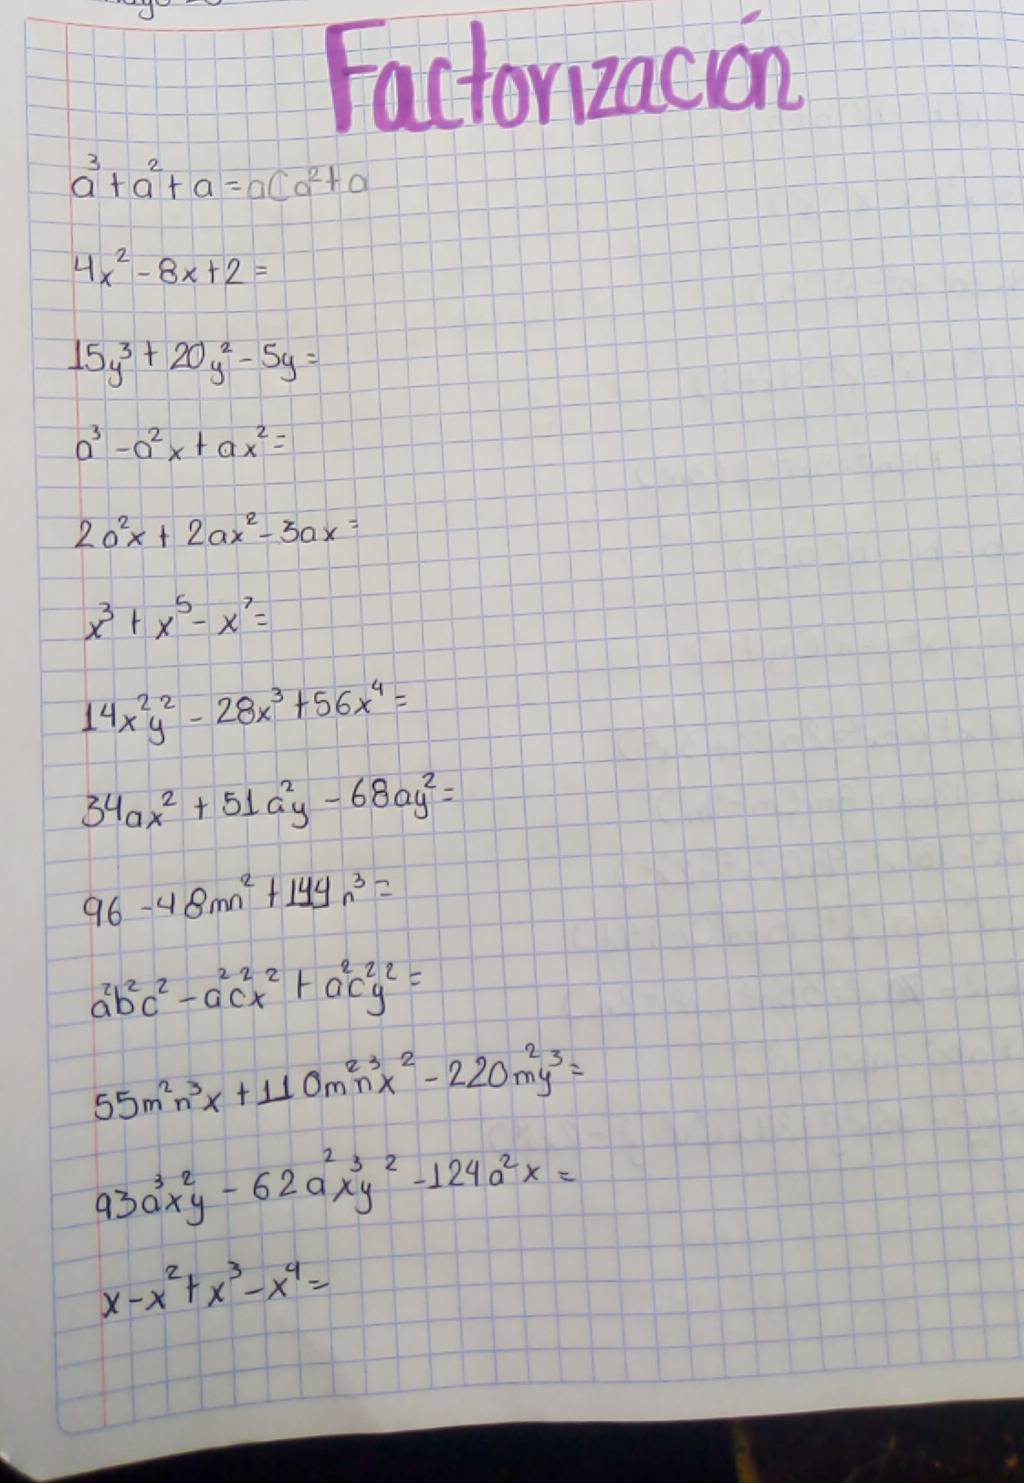 Factorización
a³ + a² + a = a(a² + a
4x² - 8x + 2 =
15y³ + 20y² - 5y =
a³ - a²x + ax² =
2a²x + 2ax² - 3ax =
x³ + x⁵ - x⁷ =
14x²y² - 28x³ + 56x⁴ =
34ax² + 51a²y - 68ay² =
96 - 48mn² + 144n³ =
a²b²c² - a²c²x² + a²c²y² =
55m²n³x + 110m²n³x² - 220m²y³ =
93a³x²y - 62a²x³y² - 124a²x =
x - x² + x³ - x⁴ =